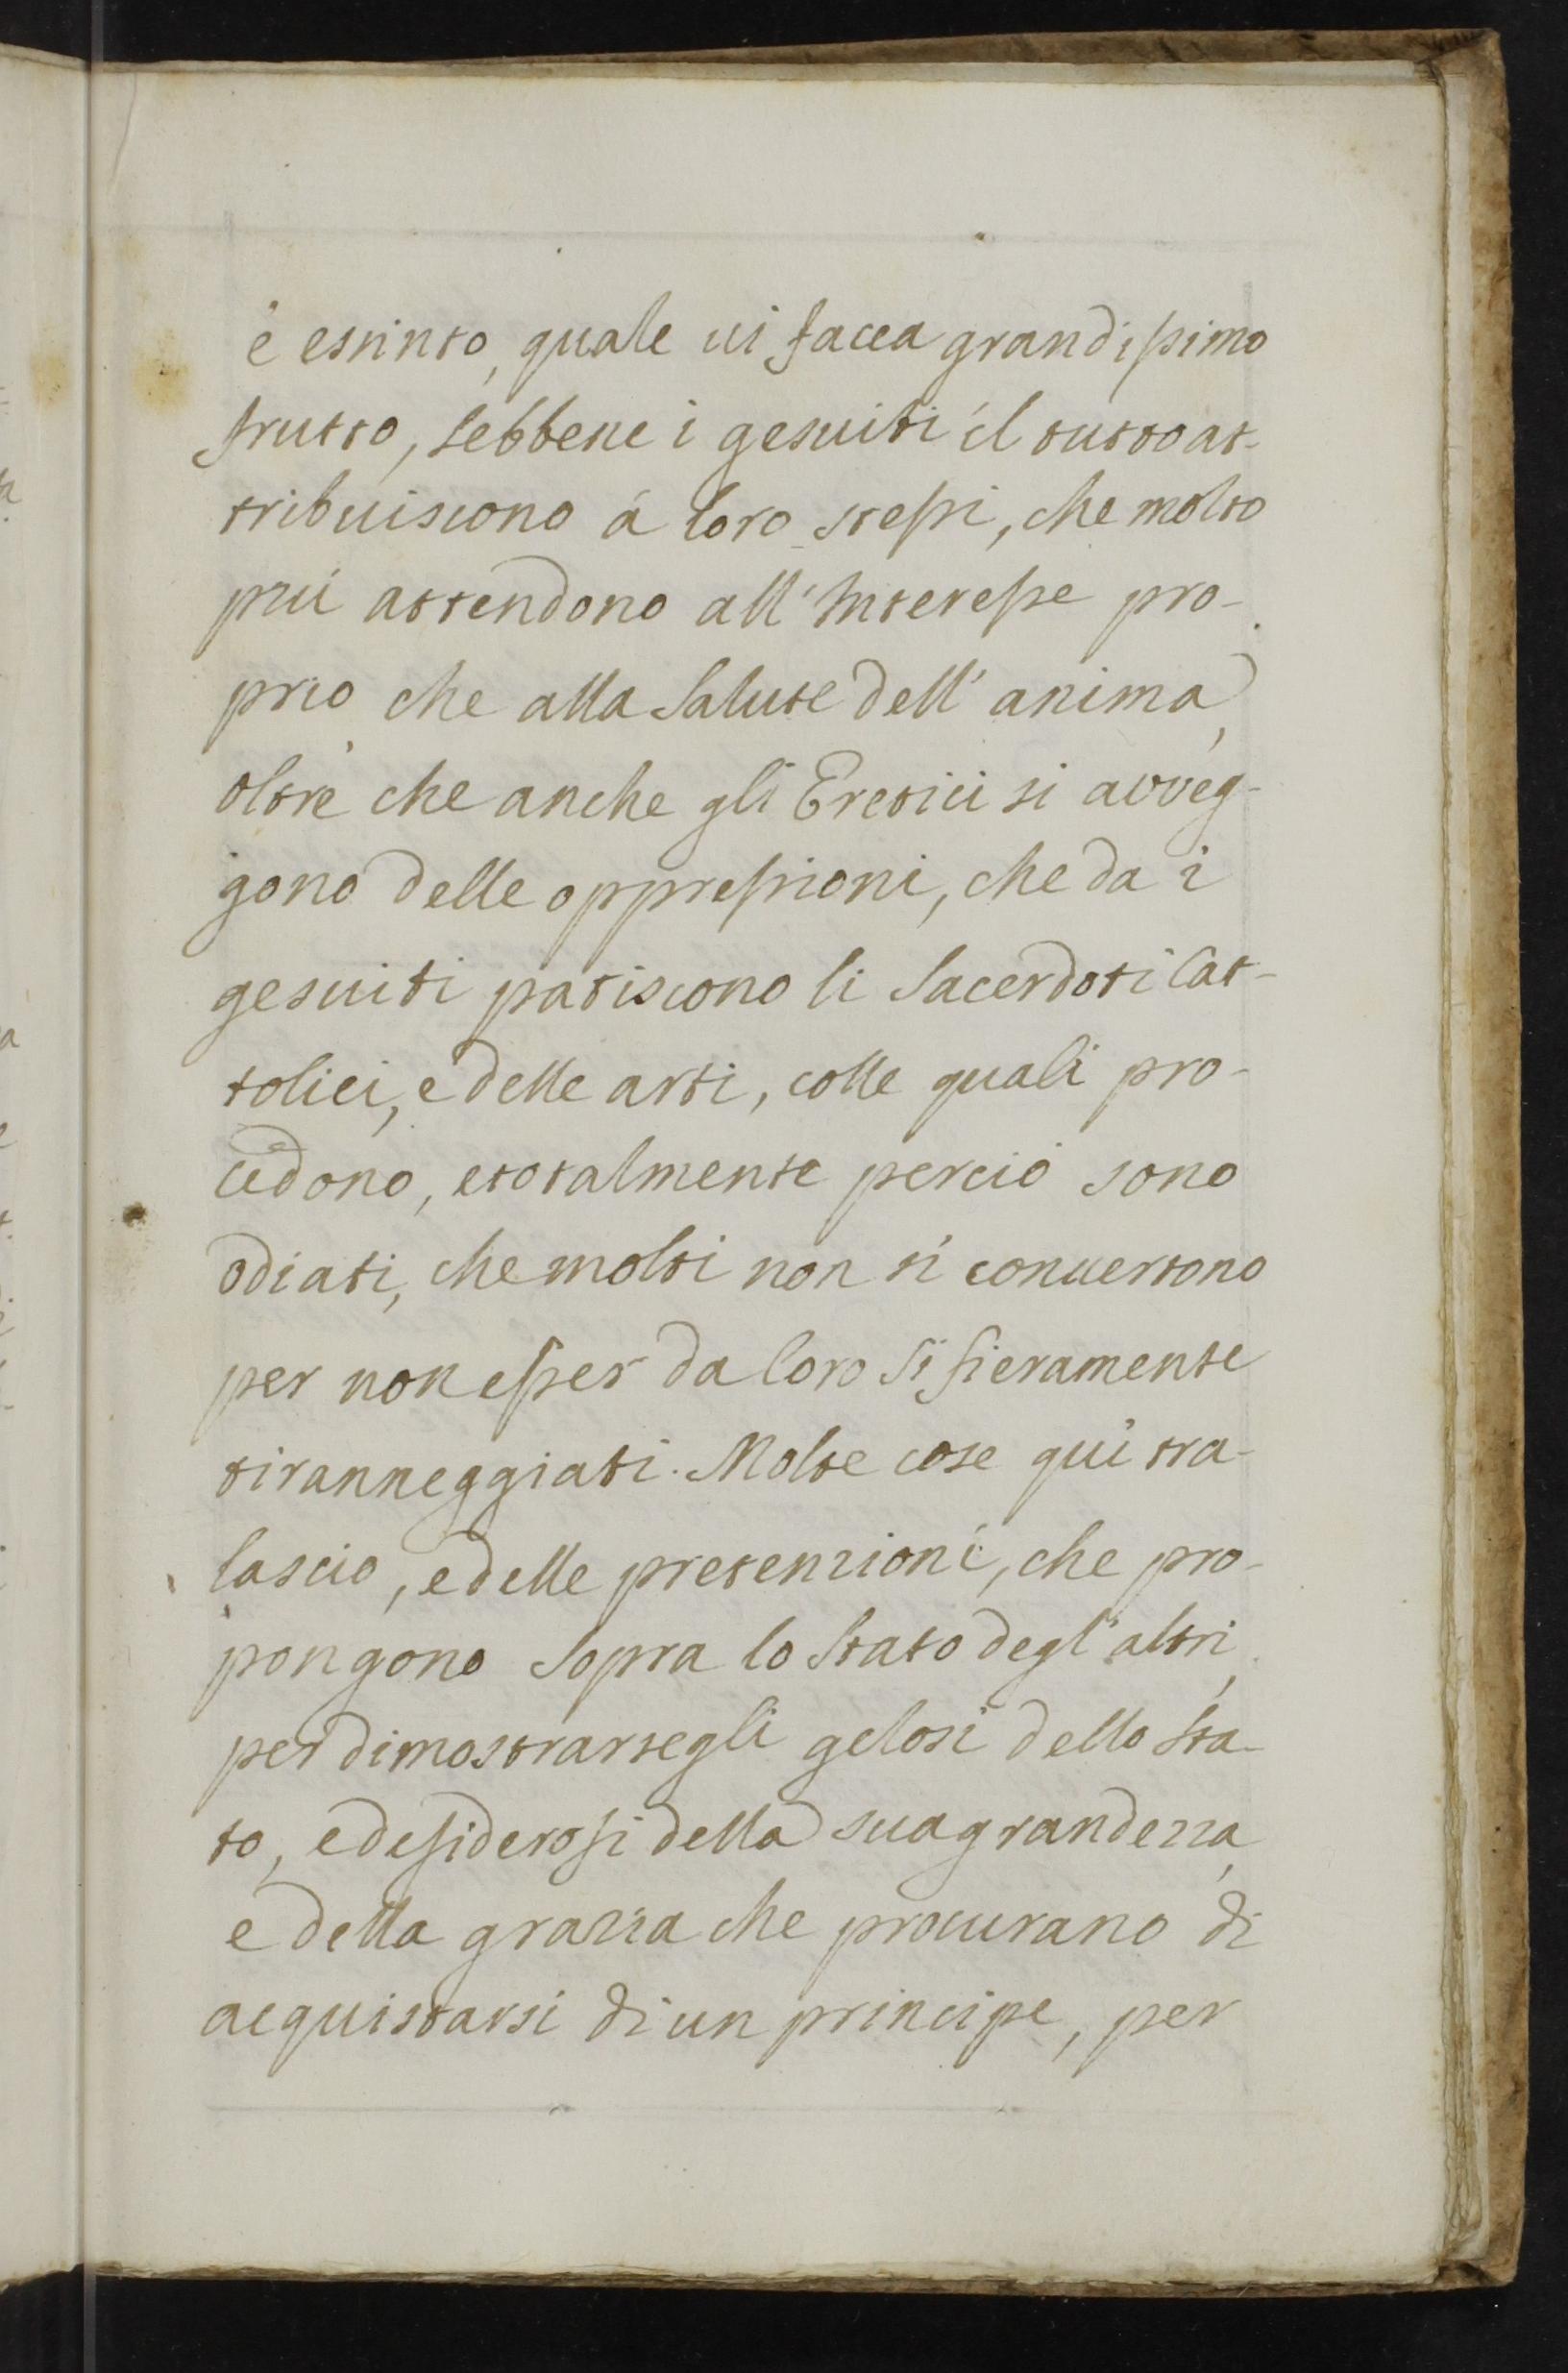 è estinto, quale ui facea grandissimo
frutto, sebbene i gesuiti il tutto at-
tribuiscono à loro stessi, che molto
piú attendono all'Interesse pro-
prio che alla Salute dell'anima,
oltre che anche gli Eretici si avveg-
gono delle oppressioni, che da i
gesuiti patiscono li Sacerdoti Cat-
tolici, e delle arti, colle quali pro-
cedono, e totalmente perciò sono
odiati, che molti non si conuertono
per non esser da loro sì fieramente
tiranneggiati. Molte cose quì tra-
lascio, e delle pretenzioni, che pro-
pongono sopra lo Stato degl'altri,
per dimostrarsegli gelosi dello Sta-
to, e desiderosi della sua grandezza,
e della grazia che procurano di
acquistarsi di un principe, per